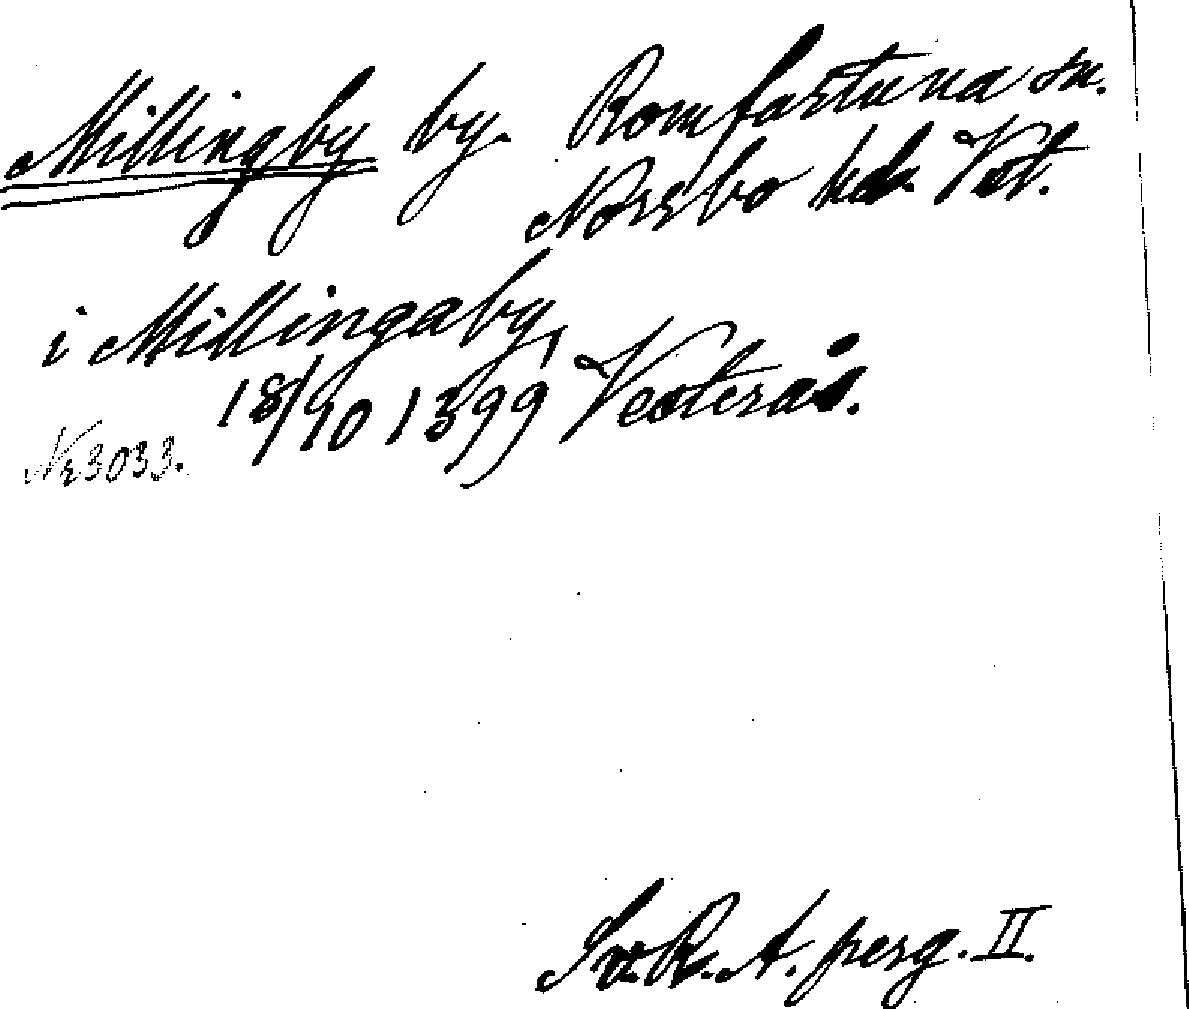 Millingby by. Romfartuna sn.
Norrbo hd. Vst.
i Millingaby,
18/10 1399 Vesterås.
Nr 3033.
Sv. R. A. perg. II.